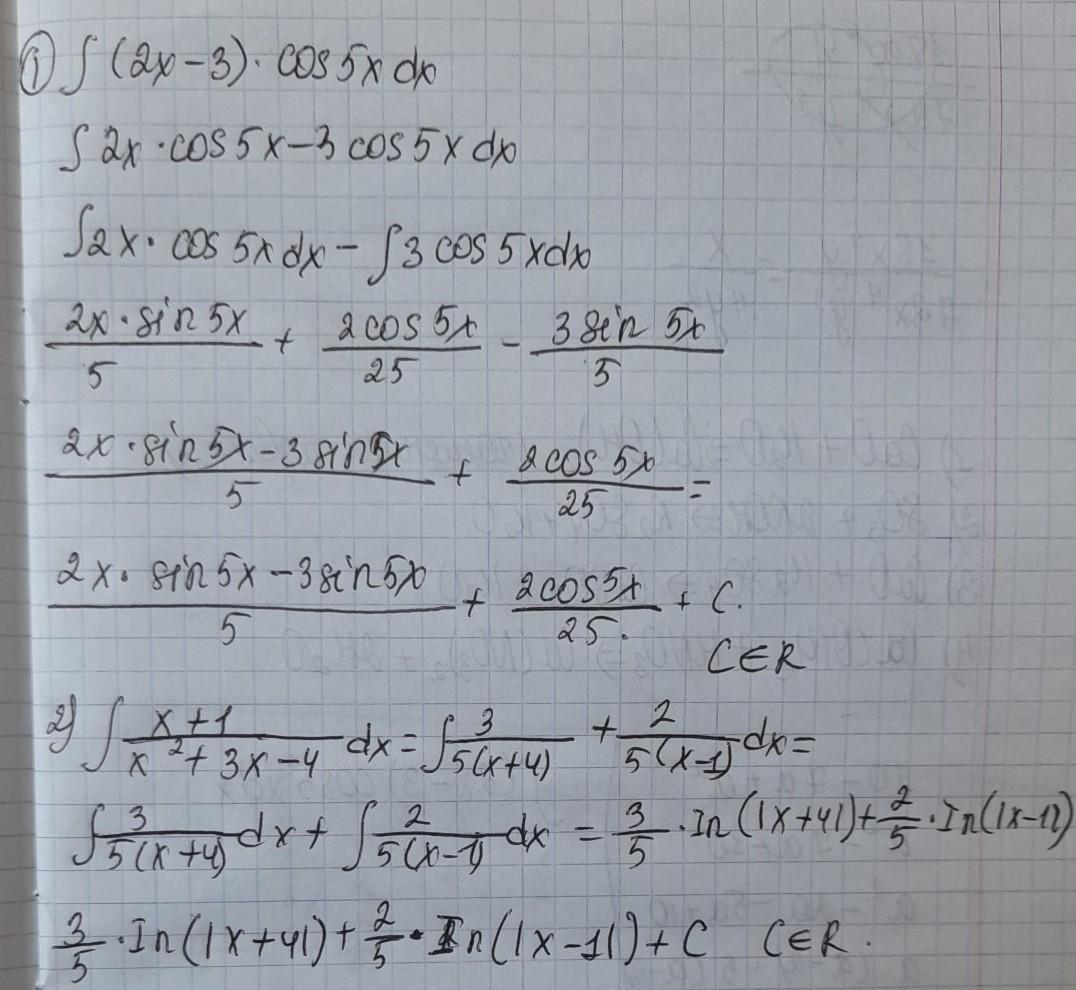 ① ∫ (2x-3)· cos 5x dx
∫ 2x · cos 5x - 3 cos 5x dx
∫ 2x · cos 5x dx - ∫ 3 cos 5x dx
2x · sin 5x / 5 + 2 cos 5x / 25 - 3 sin 5x / 5
2x · sin 5x - 3 sin 5x / 5 + 2 cos 5x / 25 =
2x · sin 5x - 3 sin 5x / 5 + 2 cos 5x / 25 + C.
C ∈ R
2) ∫ x+1 / x² + 3x - 4 dx = ∫ 3 / 5(x+4) + 2 / 5(x-1) dx =
∫ 3 / 5(x+4) dx + ∫ 2 / 5(x-1) dx = 3/5 · In (|x+4|) + 2/5 · In (|x-1|)
3/5 · In (|x+4|) + 2/5 · In (|x-1|) + C C ∈ R.